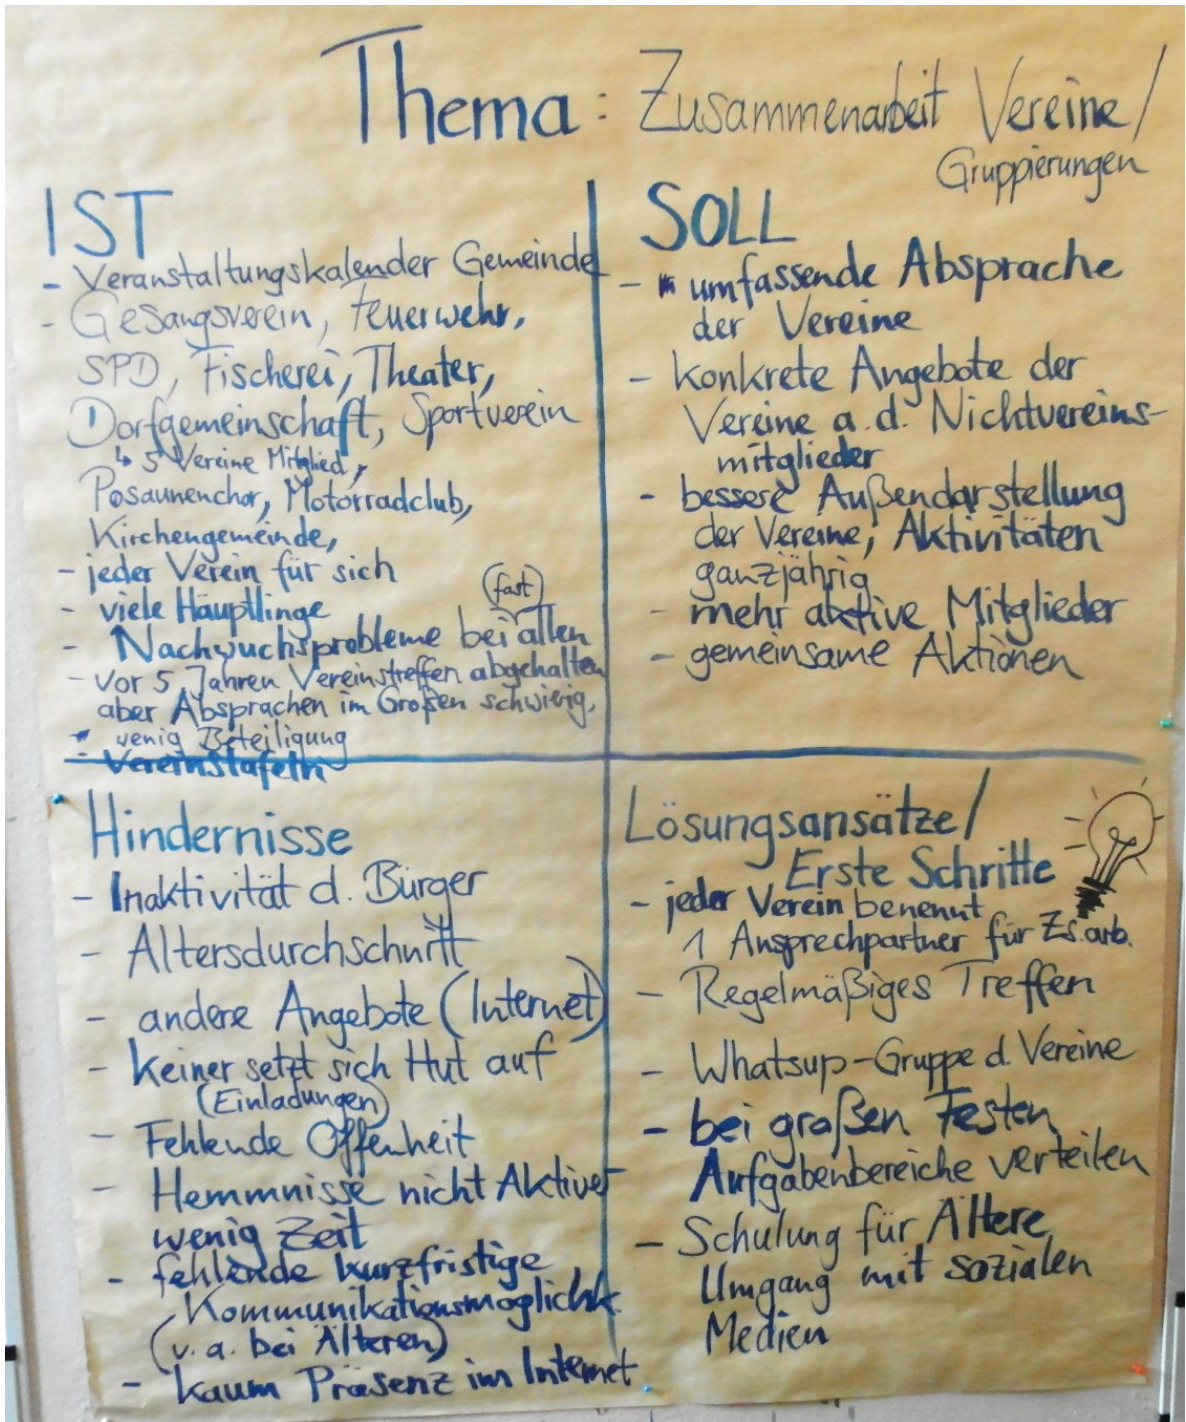 Thema: Zusammenarbeit Vereine/
Gruppierungen
IST
- Veranstaltungskalender Gemeinde
- Gesangsverein, Feuerwehr,
SPD, Fischerei, Theater,
Dorfgemeinschaft, Sportverein
↳ 5 Vereine Mitglied,
Posaunenchor, Motorradclub,
Kirchengemeinde,
- jeder Verein für sich
- viele Häuptlinge
(fast)
- Nachwuchsprobleme bei allen
- vor 5 Jahren Vereinstreffen abgehalten,
aber Absprachen im Großen schwierig,
- wenig Beteiligung
- Vereinstafeln
SOLL
- umfassende Absprache
der Vereine
- konkrete Angebote der
Vereine a.d. Nichtvereins-
mitglieder
- bessere Außendarstellung
der Vereine, Aktivitäten
ganzjährig
- mehr aktive Mitglieder
- gemeinsame Aktionen
Hindernisse
- Inaktivität d. Bürger
- Altersdurchschnitt
- andere Angebote (Internet)
- Keiner setzt sich Hut auf
(Einladungen)
- Fehlende Offenheit
- Hemmnisse nicht Aktiver
wenig Zeit
- fehlende kurzfristige
Kommunikationsmöglichk.
(v.a. bei Älteren)
- kaum Präsenz im Internet
Lösungsansätze/
Erste Schritte
- jeder Verein benennt
1 Ansprechpartner für Zs.arb.
- Regelmäßiges Treffen
- Whatsup-Gruppe d. Vereine
- bei großen Festen
Aufgabenbereiche verteilen
- Schulung für Ältere
Umgang mit sozialen
Medien